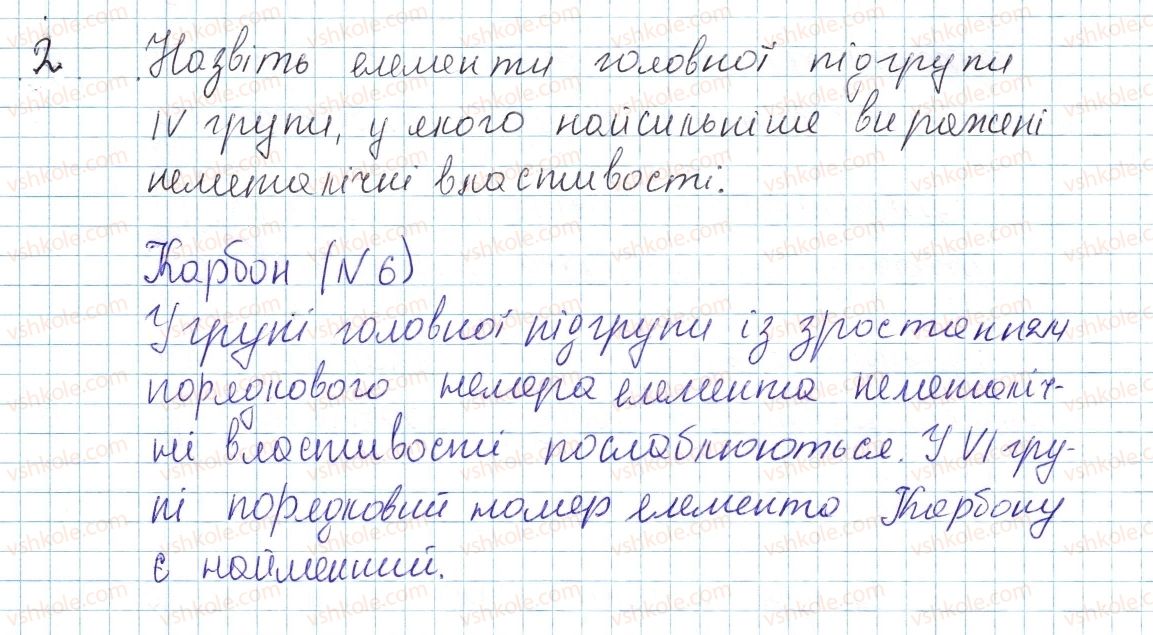 2. Назвіть елементи головної підгрупи
IV групи, у якого найсильніше виражені
неметалічні властивості.
Карбон (N 6)
У групі головної підгрупи із зростанням
порядкового номера елемента неметаліч-
ні властивості послаблюються. У VI гру-
пі порядковий номер елемента Карбону
є найменший.